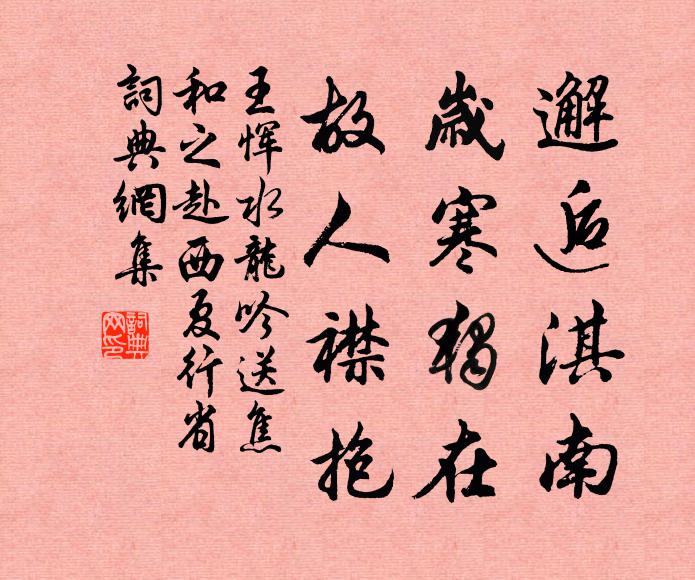 邂逅淇南
歲寒獨在
故人襟抱
王惲水龍吟送焦
和之赴西夏行省
詞典網集
詞典網印